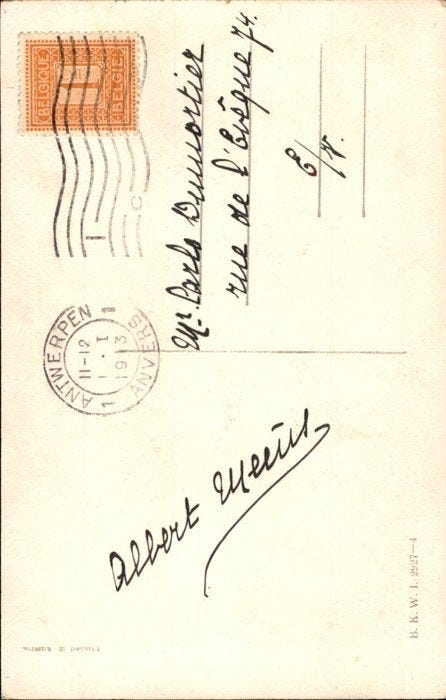 BELGIQUE
BELGIË
1
1 C
ANTWERPEN 1
11-12
1 . I
1913
1 ANVERS
Mr. Carlo Dumortier
rue de l'Evêque 74.
E/V.
Albert Meeùs
B. K. W. I. 2927—4
Printed in Austria